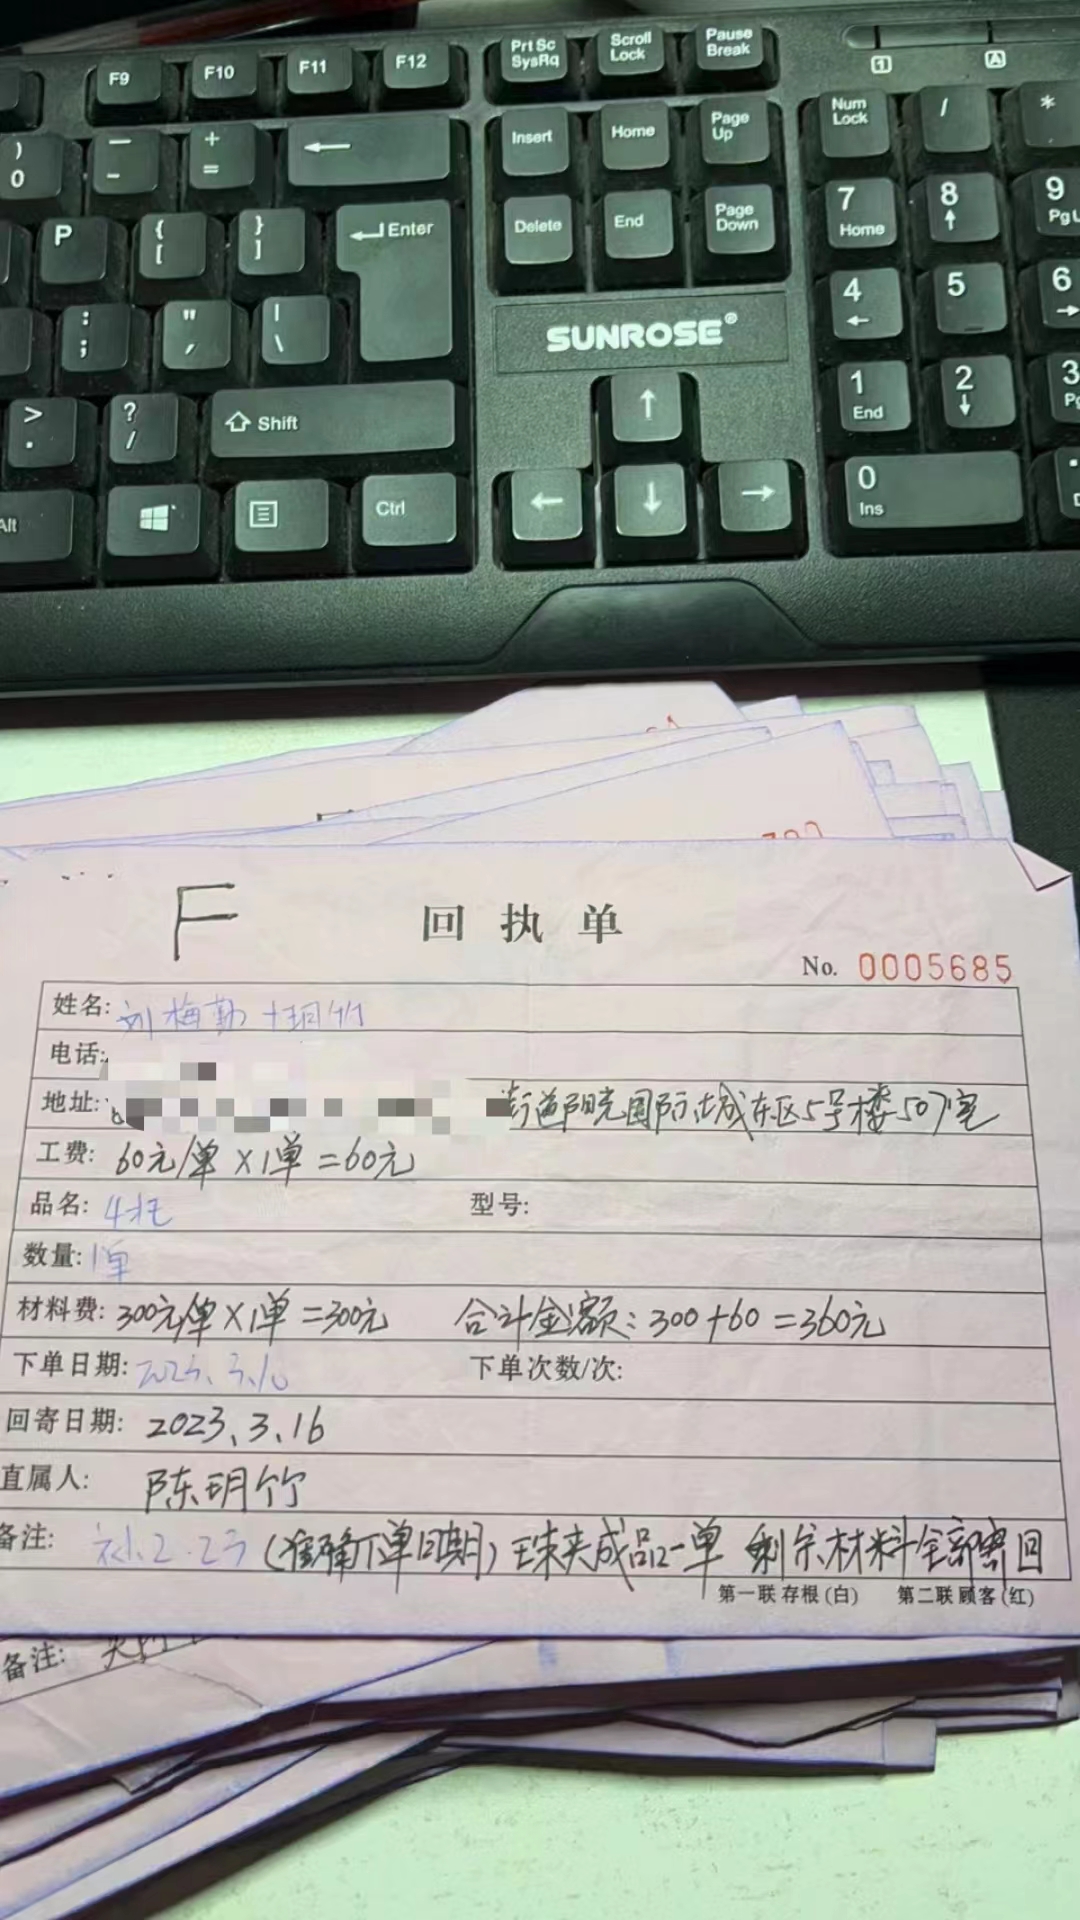 F9 F10 F11 F12 Prt Sc SysRq Scroll Lock Pause Break
1 A
) 0 — - + = ← Insert Home Page Up Num Lock / *
P { [ } ] ←Enter Delete End Page Down 7 Home 8 ↑ 9 Pg U
: ; " ' | \ SUNROSE® 4 ← 5 6 →
> . ? / Shift ↑ 1 End 2 ↓ 3 Pg
Alt Ctrl ← ↓ → 0 Ins
F 回执单
No. 0005685
姓名: 刘梅勤 十玥竹
电话:
地址: 街道阳光国际城东区5号楼507室
工费: 60元/单×1单=60元
品名: 4托 型号:
数量: 1单
材料费: 300元/单×1单=300元 合计金额: 300+60=360元
下单日期: 2023.3.10 下单次数/次:
回寄日期: 2023.3.16
直属人: 陈玥竹
备注: 补2.23 (准确下单日期) 珠夹成品一单 剩余材料全部寄回
第一联 存根(白) 第二联 顾客(红)
备注: